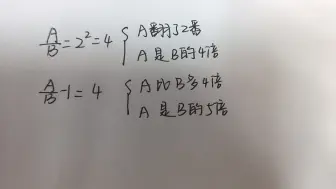 A/B=2²=4 { A翻了2番
A是B的4倍
A/B-1=4 { A比B多4倍
A是B的5倍